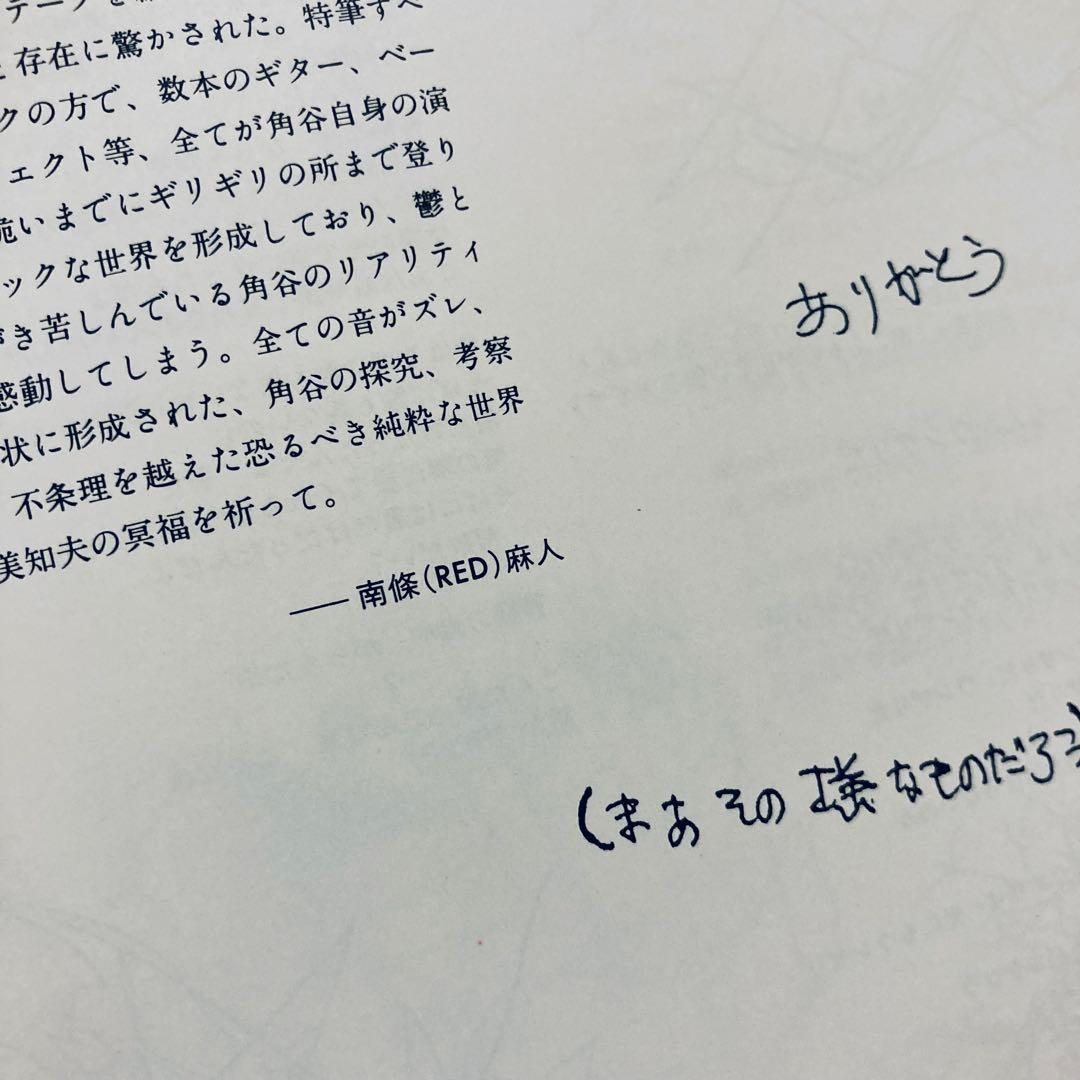 存在に驚かされた。特筆すべ
クの方で、数本のギター、ベー
ェクト等、全てが角谷自身の演
いまでにギリギリの所まで登り
ックな世界を形成しており、鬱と
き苦しんでいる角谷のリアリティ
感動してしまう。全ての音がズレ、
状に形成された、角谷の探究、考察
不条理を越えた恐るべき純粋な世界
美知夫の冥福を祈って。
── 南條(RED)麻人
ありがとう
(まあその様なものだろう)